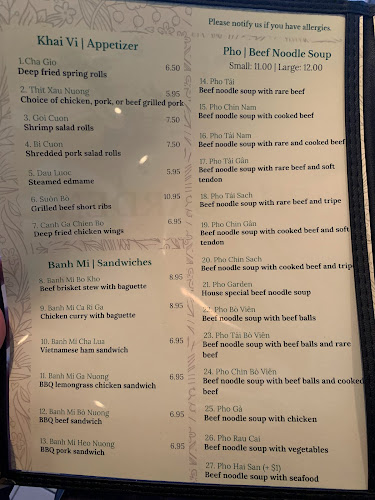 Please notify us if you have allergies.
Khai Vi | Appetizer
1.Cha Gio
Deep fried spring rolls 6.50
2. Thit Xau Nuong 5.95
Choice of chicken, pork, or beef grilled pork
3. Goi Cuon 7.50
Shrimp salad rolls
4. Bi Cuon 7.50
Shredded pork salad rolls
5. Dau Luoc 5.95
Steamed edmame
6. Suon Bo 10.95
Grilled beef short ribs
7. Canh Ga Chien Bo 6.95
Deep fried chicken wings
Banh Mi | Sandwiches
8. Banh Mi Bo Kho 8.95
Beef brisket stew with baguette
9. Banh Mi Ca Ri Ga 8.95
Chicken curry with baguette
10. Banh Mi Cha Lua 6.95
Vietnamese ham sandwich
11. Banh Mi Ga Nuong 6.95
BBQ lemongrass chicken sandwich
12. Banh Mi Bò Nuong 6.95
BBQ beef sandwich
13. Banh Mi Heo Nuong 6.95
BBQ pork sandwich
Pho | Beef Noodle Soup
Small: 11.00 | Large: 12.00
14. Pho Tái
Beef noodle soup with rare beef
15. Pho Chin Nam
Beef noodle soup with cooked beef
16. Pho Tái Nam
Beef noodle soup with rare and cooked beef
17. Pho Tái Gân
Beef noodle soup with rare beef and soft
tendon
18. Pho Tái Sach
Beef noodle soup with rare beef and tripe
19. Pho Chin Gân
Beef noodle soup with cooked beef and soft
tendon
20. Pho Chin Sach
Beef noodle soup with cooked beef and tripe
21. Pho Garden
House special beef noodle soup
22. Pho Bò Viên
Beef noodle soup with beef balls
23. Pho Tái Bò Viên
Beef noodle soup with beef balls and rare
beef
24. Pho Chin Bò Viên
Beef noodle soup with beef balls and cooked
beef
25. Pho Gà
Beef noodle soup with chicken
26. Pho Rau Cai
Beef noodle soup with vegetables
27. Pho Hai San (+ $1)
Beef noodle soup with seafood